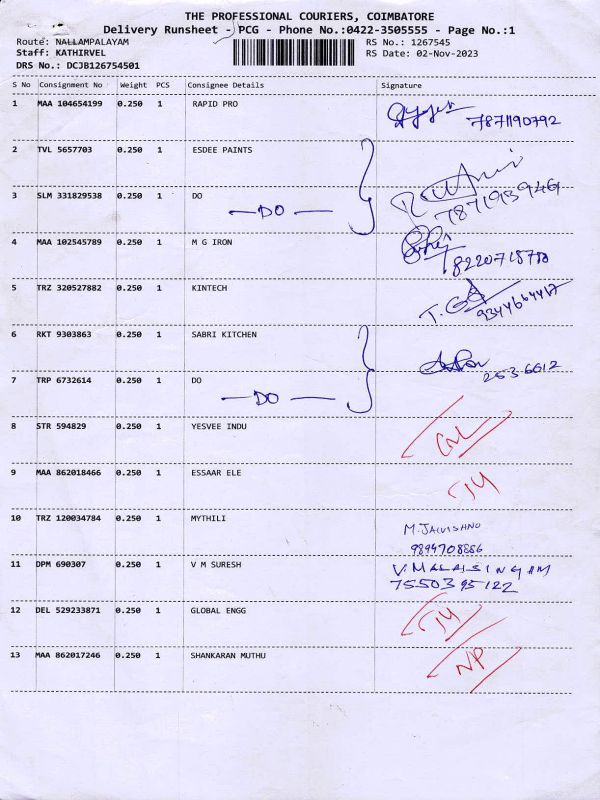 THE PROFESSIONAL COURIERS, COIMBATORE
Delivery Runsheet - PCG - Phone No.:0422-3505555 - Page No.:1
Route: NALLAMPALAYAM RS No.: 1267545
Staff: KATHIRVEL RS Date: 02-Nov-2023
DRS No.: DCJB126754501
S No Consignment No Weight PCS Consignee Details Signature
1 MAA 104654199 0.250 1 RAPID PRO 7871190792
2 TVL 5657703 0.250 1 ESDEE PAINTS
3 SLM 331829538 0.250 1 DO
— DO — 7871939461
4 MAA 102545789 0.250 1 M G IRON
5 TRZ 320527882 0.250 1 KINTECH
6 RKT 9303863 0.250 1 SABRI KITCHEN
2536612
7 TRP 6732614 0.250 1 DO
— DO —
8 STR 594829 0.250 1 YESVEE INDU
9 MAA 862018466 0.250 1 ESSAAR ELE
10 TRZ 120034784 0.250 1 MYTHILI
9894708886
11 DPM 690307 0.250 1 V M SURESH
7550395122
12 DEL 529233871 0.250 1 GLOBAL ENGG
13 MAA 862017246 0.250 1 SHANKARAN MUTHU NP